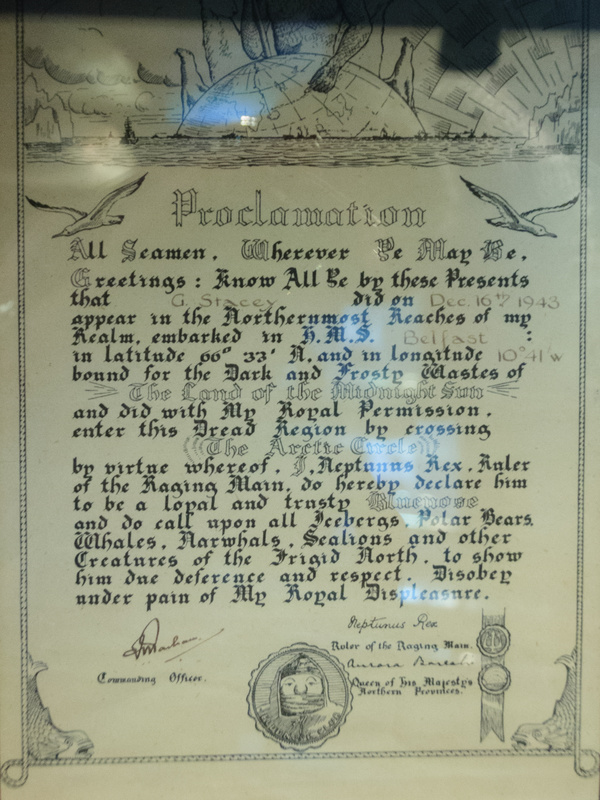 Proclamation
All Seamen, Wherever Ye May Be,
Greetings: Know All Ye by these Presents
that G. Stacey did on Dec. 16th 1943
appear in the Northernmost Reaches of my
Realm, embarked in H.M.S. Belfast :
in latitude 66° 33' N, and in longitude 10°41'W
bound for the Dark and Frosty Wastes of
The Land of the Midnight Sun
and did with My Royal Permission,
enter this Dread Region by crossing
The Arctic Circle
by virtue whereof, I, Neptunus Rex, Ruler
of the Raging Main, do hereby declare him
to be a loyal and trusty Bluenose
and do call upon all Icebergs, Polar Bears,
Whales, Narwhals, Sealions and other
Creatures of the Frigid North, to show
him due deference and respect. Disobey
under pain of My Royal Displeasure.
Neptunus Rex
Ruler of the Raging Main.
Aurora
Commanding Officer.
Queen of His Majesty's
Northern Provinces.